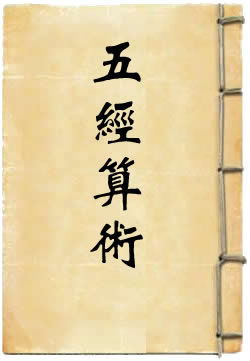 五經算術